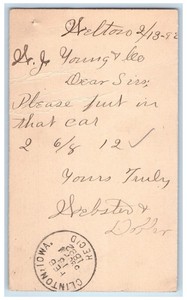 Welton 2/13-82
W. J. Young & Co
Dear Sirs,
Please put in
that car
2 6/8 12 ✓
Yours Truly
Webster &
CLINTON IOWA.
FEB
REC'D